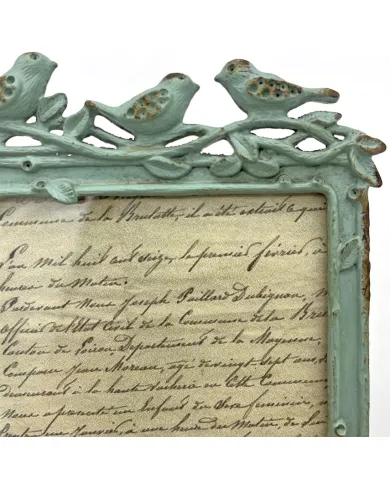 Commune de la Brulatte, il a été extrait ce qui
L'an mil huit cent seize, le premier février, à
heures du Matin.
Pardevant Nous Joseph Paillard Dubignon, M
officier de l'état Civil de la Commune de la Bru
Canton de Loiron Département de la Mayenne,
Comparu Jean Moreau, agé de vingt sept ans, de
demeurant à la haute en Cette Commune
Nous a présenté un Enfant du Sexe féminin, n
Janvier, à une heure du Matin, de Lui